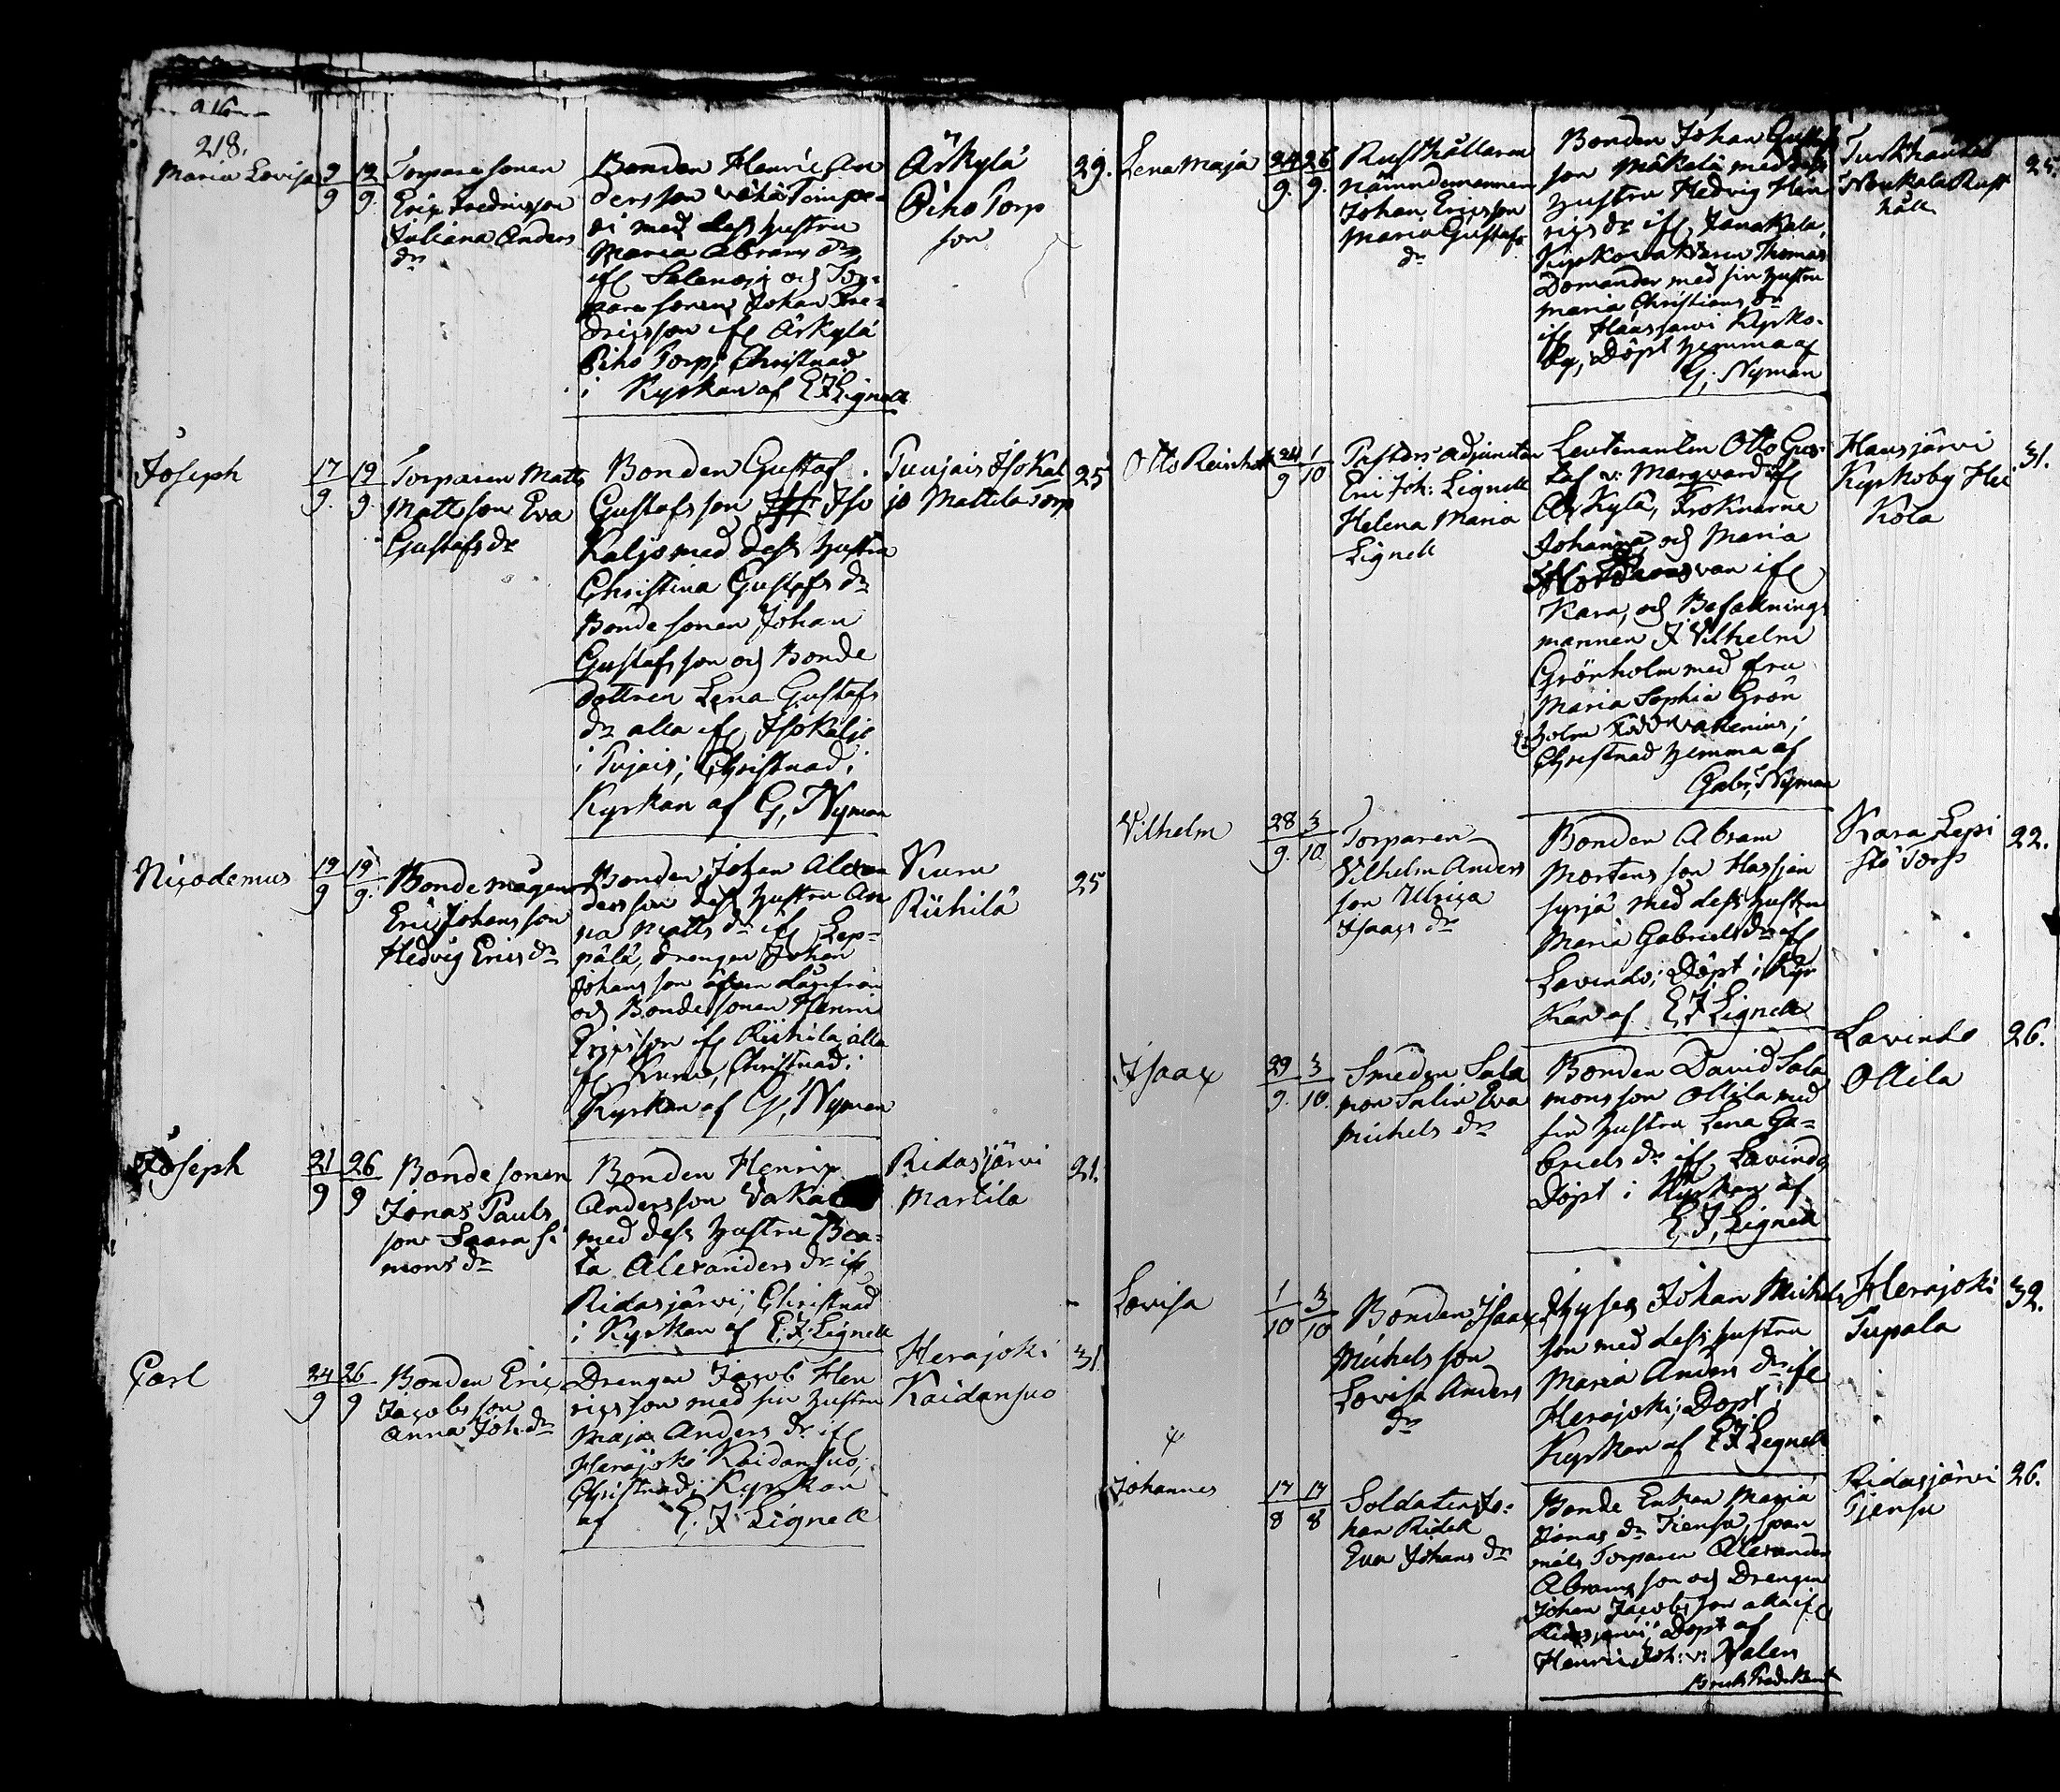 216
218.
Maria Lovisa
9/9
12/9
Torparesonen
Eric Fredricsson
Juliana Anders
dr
Bonden Henric An
dersson Vähä Teinpe-
di med dess hustru
Maria Abrams dr
if
och Tor-
paresonen Johan Fre-
dricsson if Ärkylä
Piho Torp; Christnad
i Kyrkan af E F Lignell
Ärkylä
Piho Torp
son
29.
Joseph
17/9.
19/9.
Torparen Matts
Mattsson Eva
Gustafs dr
Bonden Gustaf
Gustafsson Iso
Kaljo med dess hustru
Christina Gustafs dr
Bondesonen Johan
Gustafsson och Bonde
dottren Lena Gustafs
dr alla if Isokaljo
i Pujais; Christnad i
Kyrkan af G, Nyman
Puujais Isokal
jo Mattila Torp
25
Nicodemus
19/9
19/9.
Bondemågen
Eric Johansson
Hedvig Erics dr
Bonden Johan Alexan
dersson dess hustru An
na Matts dr if Lep-
pälä, drengen Johan
Johansson
och Bondesonen Henric
Ericsson if Riihilä alla
if Kuru, Christnad i
Kyrkan af G, Nyman
Kuru
Riihilä
25
Joseph
21/9
26/9
Bondesonen
Jonas Pauls
son Saara Si
mons dr
Bonden Henric
Andersson
med dess hustru Bea-
ta Alexanders dr if
Ridasjärvi; Christnad
i Kyrkan af E. F. Lignell
Ridasjärvi
Martila
21.
Carl
24/9
26/9
Bonden Eric
Jacobsson
Anna Joh. dr
Drengen Jacob Hen
ricsson med sin hustru
Maja Anders dr if
Herajoki Kaidansuo,
Christnad i Kyrkan
af E. F. Lignell
Herajoki
Kaidansuo
31
Lena Maja
24/9.
26/9.
Rusthållaren
Nämndemannen
Johan Ericsson
Maria Gustafs
dr
Bonden Johan Gustafs
son Mäkelä med dess
hustru Hedvig Hen
rics dr if Janakala,
Kyrkovaktaren Thomas
Domander med sin hustru
Maria Christians dr
if Hausjärvi Kyrko-
by, Döpt hemma af
G; Nyman
Turkhauta
Rust
håll
25.
Otto Reinholt
24/9
1/10
Pastors Adjuncten
Eric Joh: Lignell
Helena Maria
Lignell
Leutenanten Otto Gus-
taf v: Marqvard if
Ärkylä, Fröknarne
Johanna och Maria
if
Kara, och Befalnings
mannen J Vilhelm
Grönholm med fru
Maria Sophia Grön
holm född Valkenius;
Christnad hemma af
Gabr, Nyman
Hausjärvi
Kyrkoby Hei
Kola
31.
Vilhelm
28/9.
3/10.
Torparen
Vilhelm Anders
son Ulrica
Isaacs dr
Bonden Abram
Mortensson Hassjan
syrjä med dess hustru
Maria Gabriels dr if
Lavindo; Döpt i Kyr
kan af E, F Lignell
Kara Lepi
stö Torp
22.
Isaac
29/9.
3/10.
Smeden Salo
mon Salin Eva
Michels dr
Bonden David Salo
monsson Ollila med
sin hustru Lena Ga-
briels dr if Lavindo
Döpt i Kyrkan af
E, F, Lignell
Lavindo
Ollila
26.
Lovisa
1/10
3/10
Bonden Isaac
Michelsson
Lovisa Anders
dr
Johan Michels
son med dess hustru
Maria Anders dr if
Herajoki; Döpt i
Kyrkan af E F Lignell
Herajoki
Tupala
32.
Johannes
17/8
17/8
Soldaten Jo-
han Ridell
Eva Johans dr
Bonde Enkan Maria
Jonas dr Tiensu, span
måls Torparen Alexander
Abramsson och Drengen
Johan Jacobsson alla if
Ridasjärvi; Döpt af
Henric Joh: v:
Ridasjärvi
Tiensu
26.